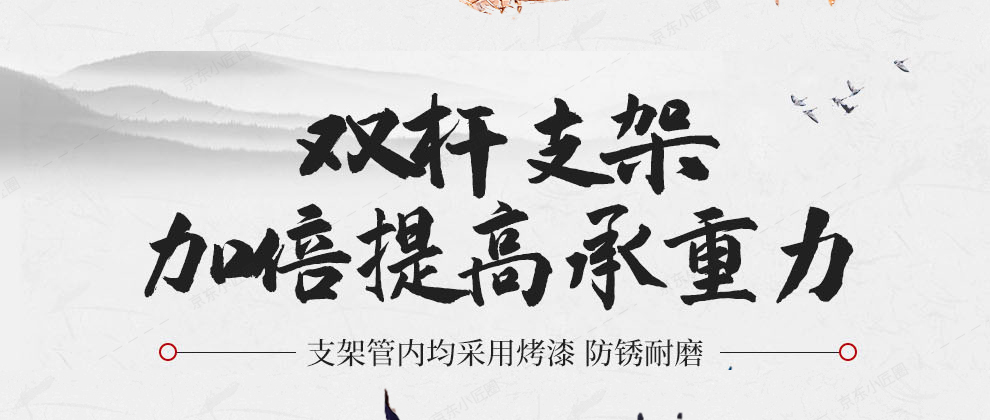 双杆支架
加倍提高承重力
支架管内均采用烤漆 防锈耐磨